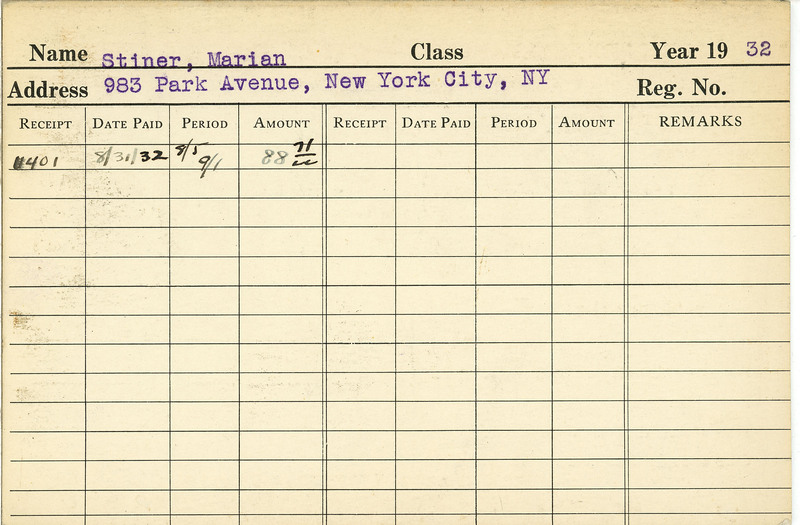 Name Stiner, Marian Class Year 19 32
Address 983 Park Avenue, New York City, NY Reg. No.
RECEIPT DATE PAID PERIOD AMOUNT RECEIPT DATE PAID PERIOD AMOUNT REMARKS
8/31/32 8/5 9/1 88 71